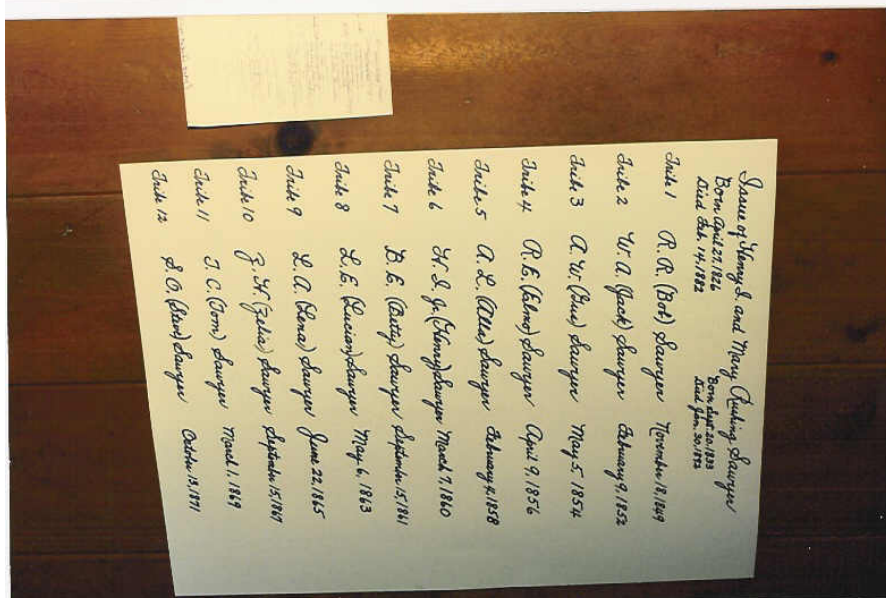 Issue of Henry I. and Mary Rushing Sawyer
Born April 27, 1826 Born Sept. 20, 1833
Died Feb. 14, 1882 Died Jan. 30, 1892
Tribe 1 R. R. (Bob) Sawyer November 18, 1849
Tribe 2 W. A. (Jack) Sawyer February 9, 1852
Tribe 3 A. W. (Gus) Sawyer May 5, 1854
Tribe 4 R. E. (Elmo) Sawyer April 9, 1856
Tribe 5 A. L. (Alla) Sawyer February 4, 1858
Tribe 6 H. I. Jr. (Henry) Sawyer March 7, 1860
Tribe 7 B. E. (Betty) Sawyer September 15, 1861
Tribe 8 L. E. (Lucian) Sawyer May 6, 1863
Tribe 9 L. A. (Lena) Sawyer June 22, 1865
Tribe 10 Z. H. (Zelia) Sawyer September 15, 1867
Tribe 11 T. C. (Tom) Sawyer March 1, 1869
Tribe 12 S. O. (Stan) Sawyer October 13, 1871